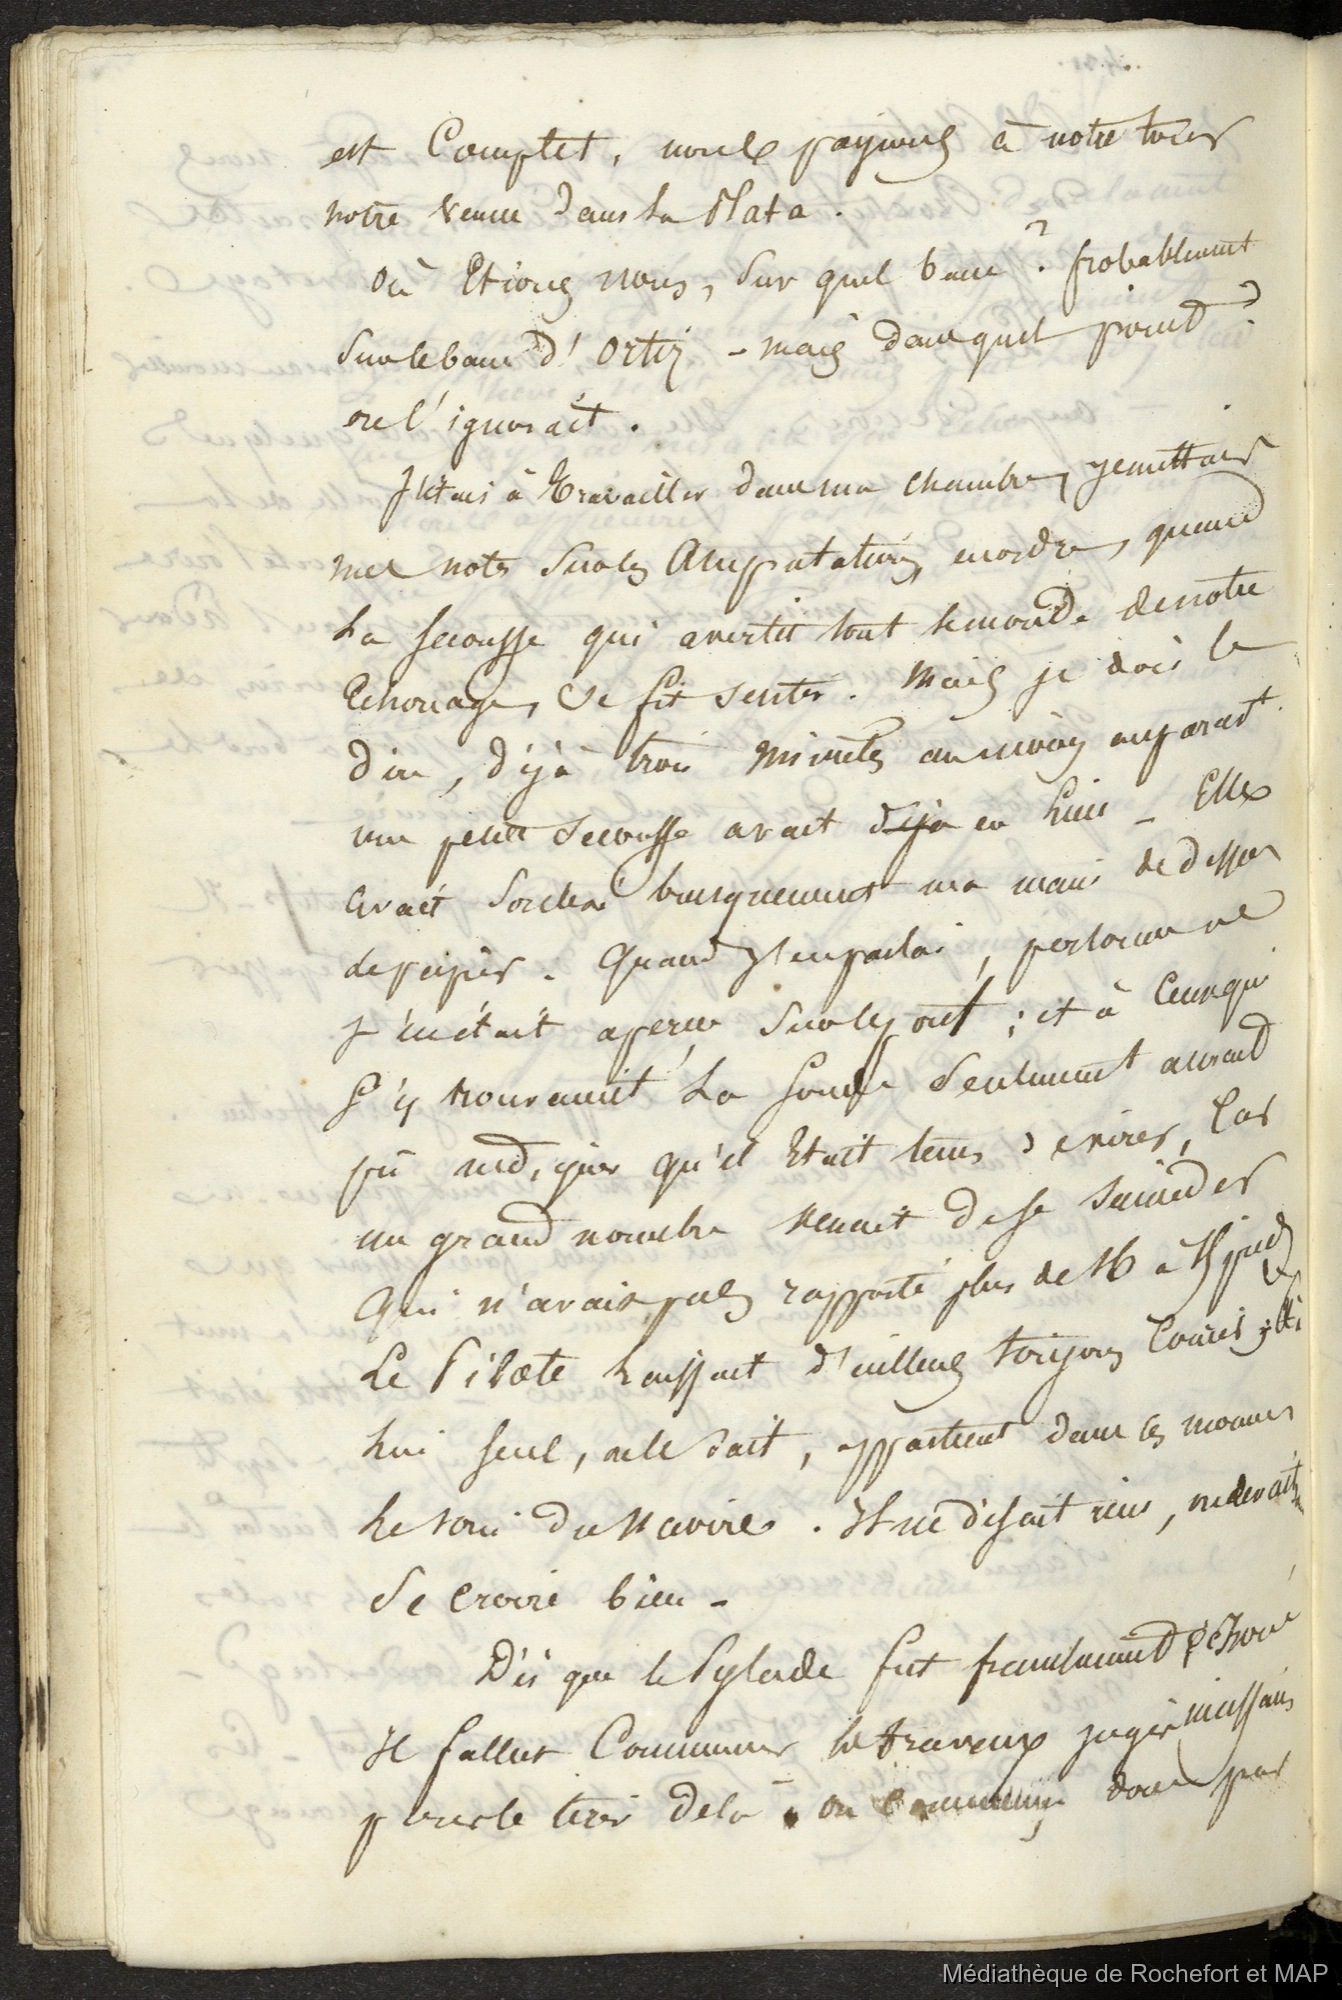 est Complet, nous payons à notre tour
notre venue dans la Plata.
Où Etions nous, Sur quel banc ? probablement
Sur le banc d'Ortiz - mais dans quel point ?
on l'ignorait.
J'étais à travailler dans ma chambre, je mettais
mes notes Sur les Amputations, en ordre, quand
la secousse qui avertit tout le monde de notre
Echouage, se fit sentir. Mais je dois le
dire, déjà trois minutes au moins auparavt
une petite Secousse avait déja eu lieu - Elle
avait Soulevé brusquement ma main de dessus
le papier. Quand j'en parlai, personne ne
s'en était aperçu Sur le pont ; et à Ceux qui
s'y trouvaient la Sonde Seulement aurait
pû indiquer qu'il Etait tems de virer, Car
un grand nombre venait de se Succéder
Qui n'avait pas rapporté plus de 16 à 15 pieds
Le Pilote laissait d'ailleurs toujours Courir ; Et à
lui seul, on le sait, appartient dans ces momens
le soin du Navire. Il ne disait rien, on devait
Se croire bien -
Dès que le Pylade fut franchement échoué
Il fallut Commencer les travaux jugés
pour le tirer de là. on commença donc par